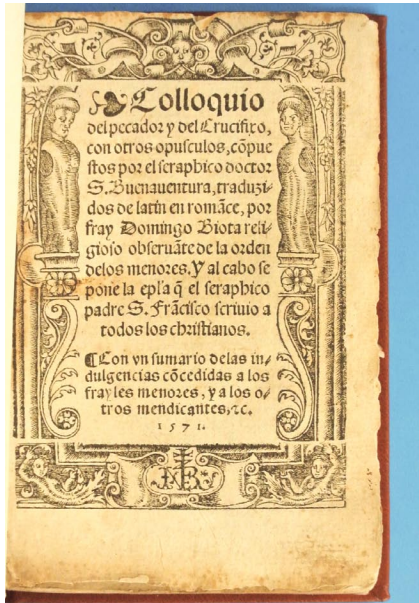 Colloquio
del peccador y del Crucifixo,
con otros opusculos, cõpue
stos por el seraphico doctor
S. Buenauentura, traduzi-
dos de latin en romãce, por
fray Domingo Biota reli-
gioso obseruãte de la orden
delos menores. Y al cabo se
pone la epľa q̃ el seraphico
padre S. Frãcisco scriuio a
todos los christianos.
¶Con vn sumario delas in-
dulgencias cõcedidas a los
frayles menores, y a los o-
tros mendicantes, ꝛc.
1571.